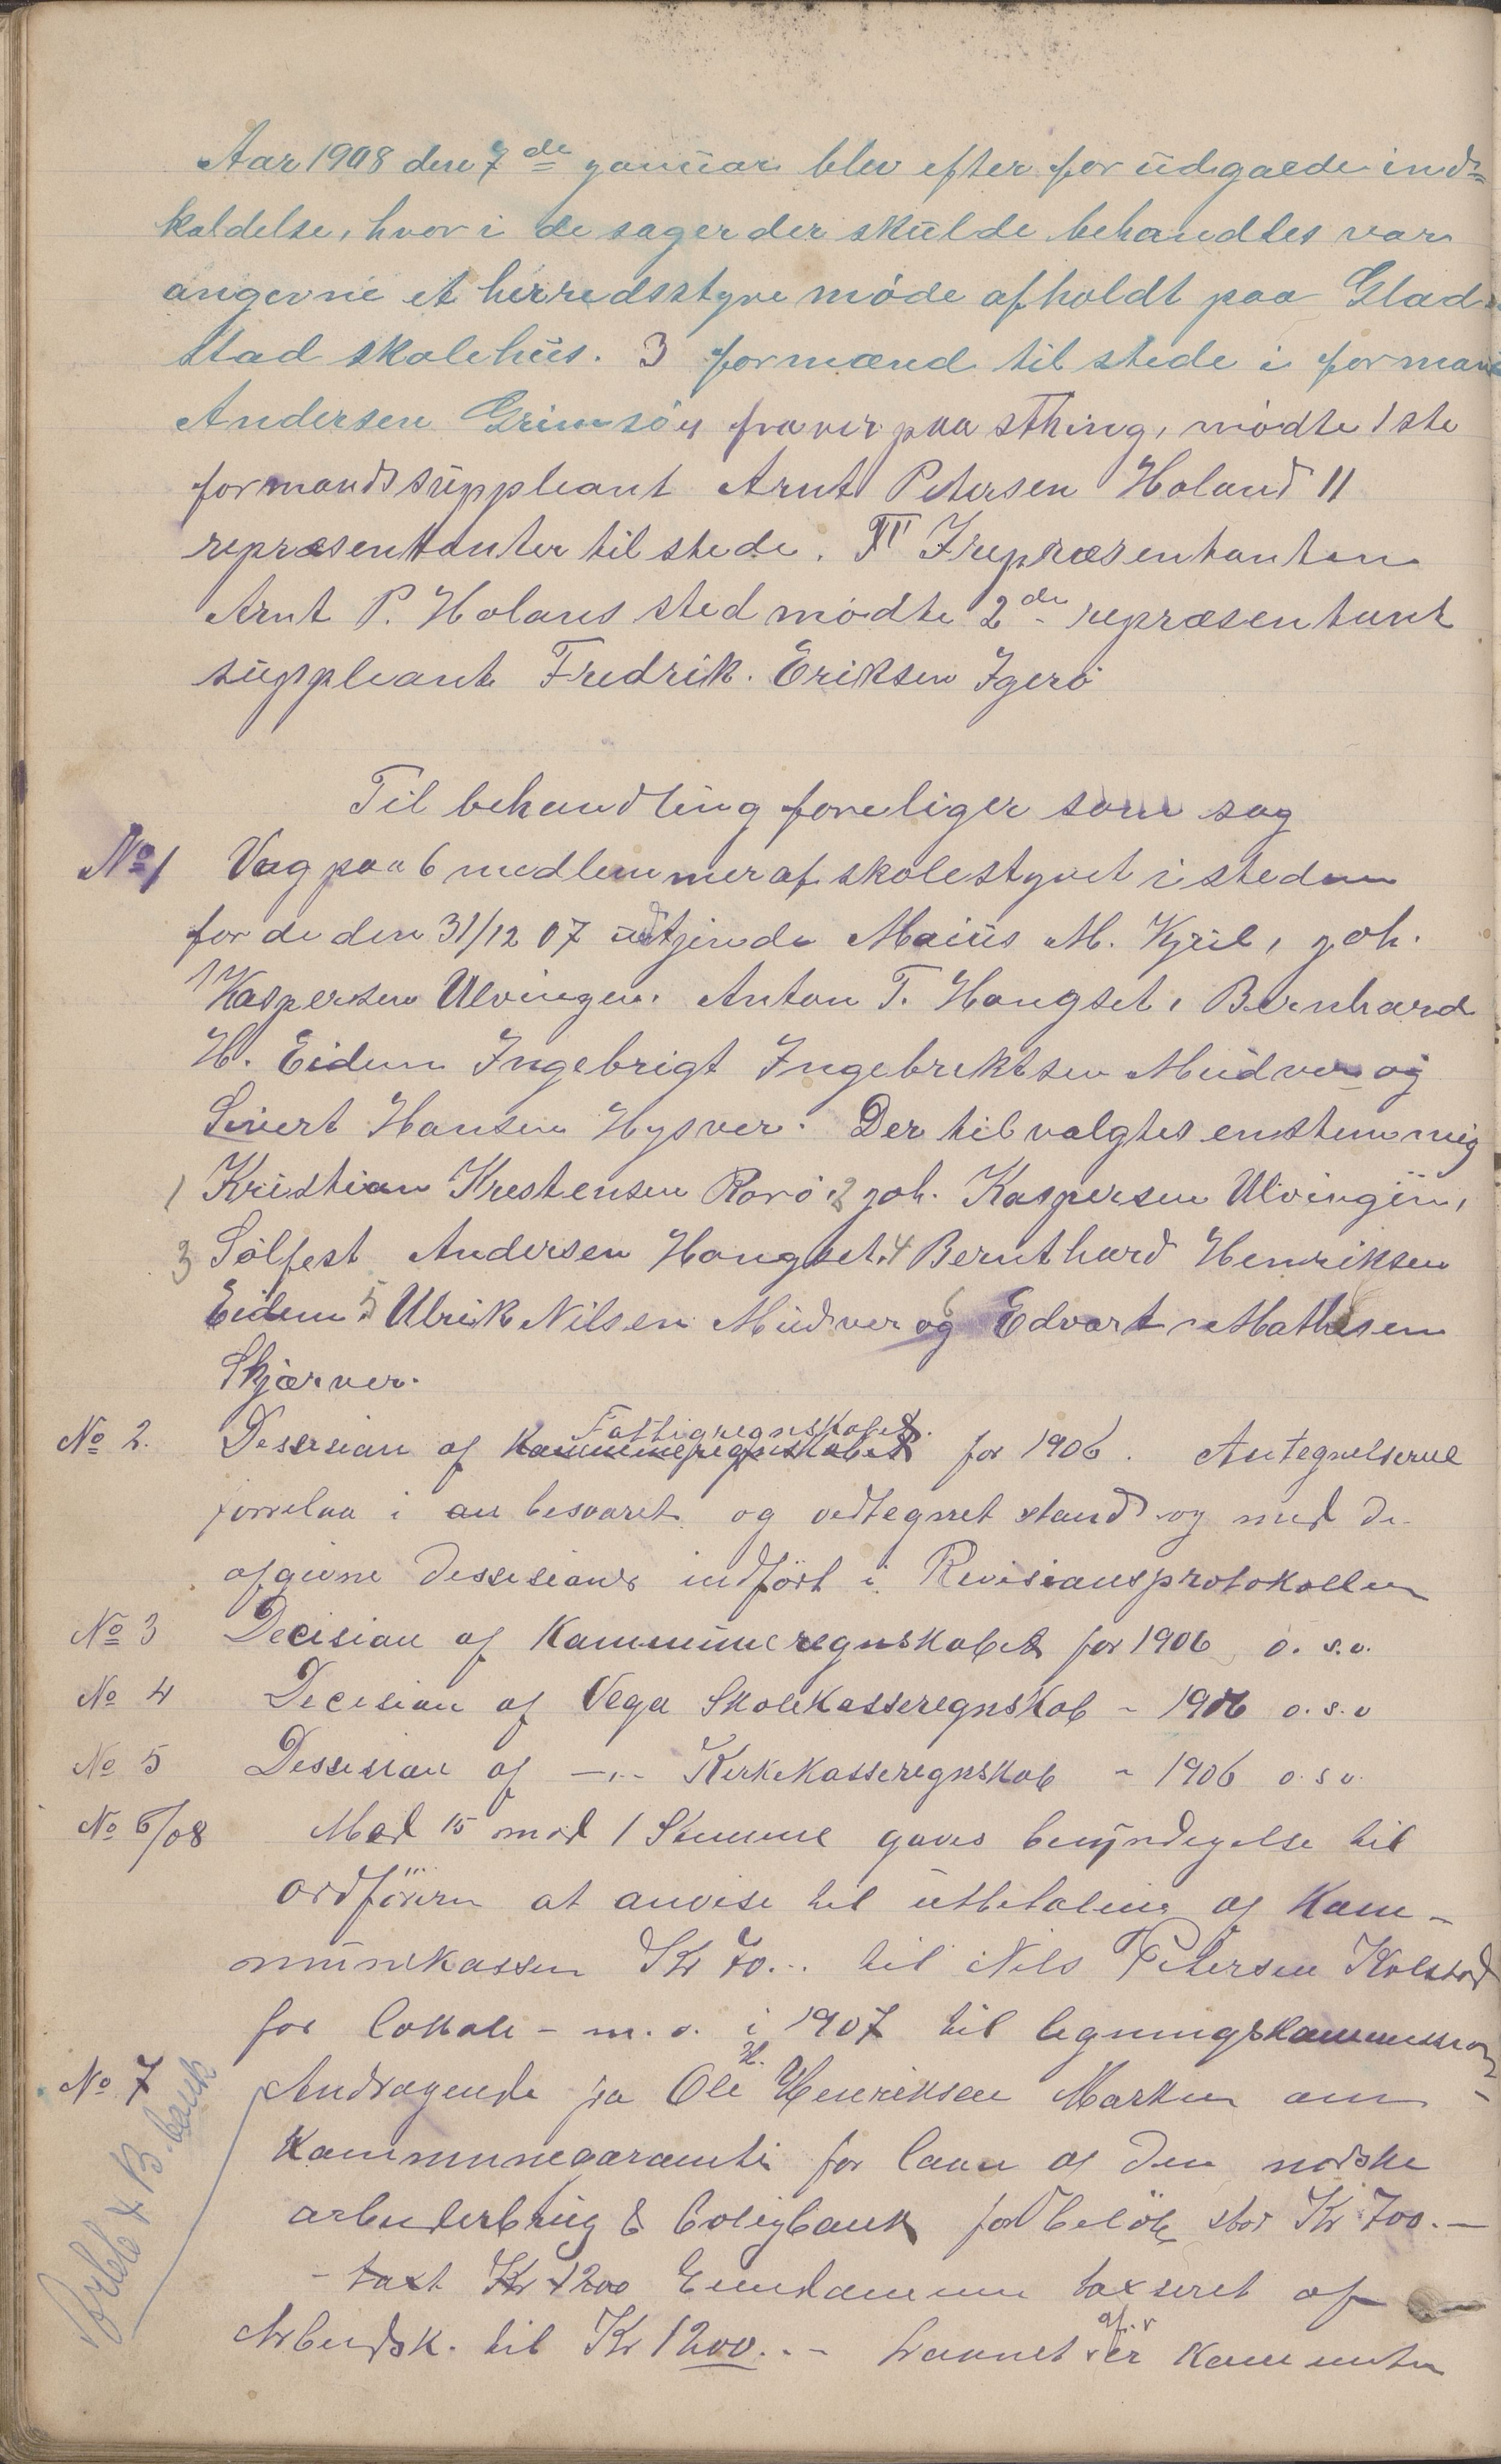 Aar 1908 den 7de januar blev efter for udgaede ind=
kaldelse, hvor i de sager der skulde behandtes var
angevne et herredsstyre møde afholdt paa Glad-
stad skolehus. 3 formænd til stede i formand
Andersen Grimsøy fraver paa sthing, mødte 1ste
formandssuppleant Arnt Petersen Holand 11
repræsentanter til stede. I repræsentanten
Arnt P. Holans sted mødte 2de repræsentant
suppleant Fredrik. Eriksen Igerø
Til behandling foreliger som sag
No 1 Vag paa 6 medlemmer af skolestyret i steden
for de den 31/12 07 udtjende Maius M. Kjul, joh.
Kaspersen Ulvingen. Anton T. Hongset, Bernhard
H. Eidem Ingebrigt Ingebrektsen Mudver og
Sivert Hansen Hysver. Der til valgtes enstemmig
1 Kristian Krestensen Rorø, 2 joh. Kaspersen Ulvingen,
3 Sølfest Andersen Hongset. 4 Bernthard Henriksen
Eidem. 5 Ulrik Nilsen Mudver og 6 Edvart Mathisen
Skjærver.
No 2. Desesian af Kammuneregnskabet Fattigregnskabet. for 1906. Antegnelserne
forrelaa i an besvaret og vedtegnet stand og med de
afgivne dessesians indført i Revisiansprotokollen
No 3 Decisian af Kammuneregnskabet for 1906 o. s. v.
No 4 Decesian af Vega Skolekasseregnskab - 1906 o. s. v
No 5 Dessesian af -"- Kerkekasseregnskab - 1906 o. s v.
No 6/08 Med 15 mod 1 Stemme gaves bemyndegelse til
Ordføren at anvise til utbetaling af Kam-
munekassen Kr 70... til Nils Petersen Kolstad
for lokale - m. v. i 1907 til legningskammission-
No 7 Andragende fra Ole H. Henriksen Marken am
Kammunegaranti for laan af den norske
arbeiderbrug & boligbank for beløb stor Kr 700.-
- taxt Kr 1200 Eiendammen taxseret af
Arbeidsk. til Kr 1200.- - Laanet af.v er Kammunen
Arbb & B. bank